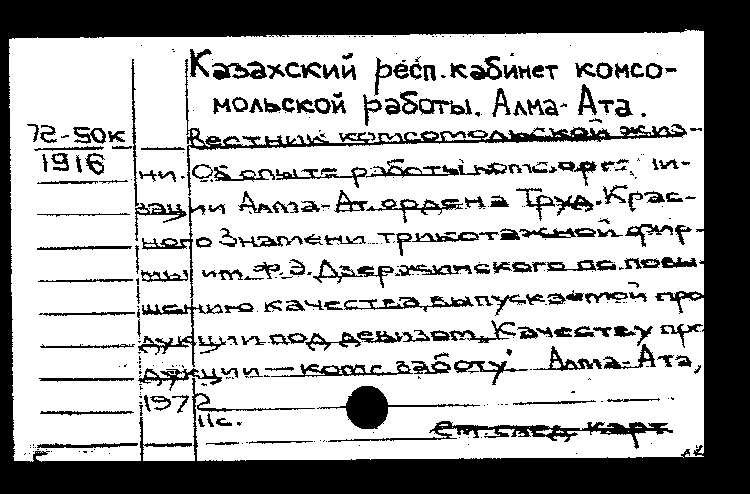 Казахский респ. кабинет комсо-
мольской работы. Алма-Ата.
72-50к Вестник комсомольской жиз-
1916 ни. Об опыте работы комс. орга-
зации Алма-Ат. ордена Труд. Крас-
ного Знамени трикотажной фир-
мы им. Ф.Э. Дзержинского по повы-
шению качества выпускаемой про
дукции под девизом „Качеству про
дукции — комс. заботу". Алма-Ата,
1972
11с.
См. след. карт.